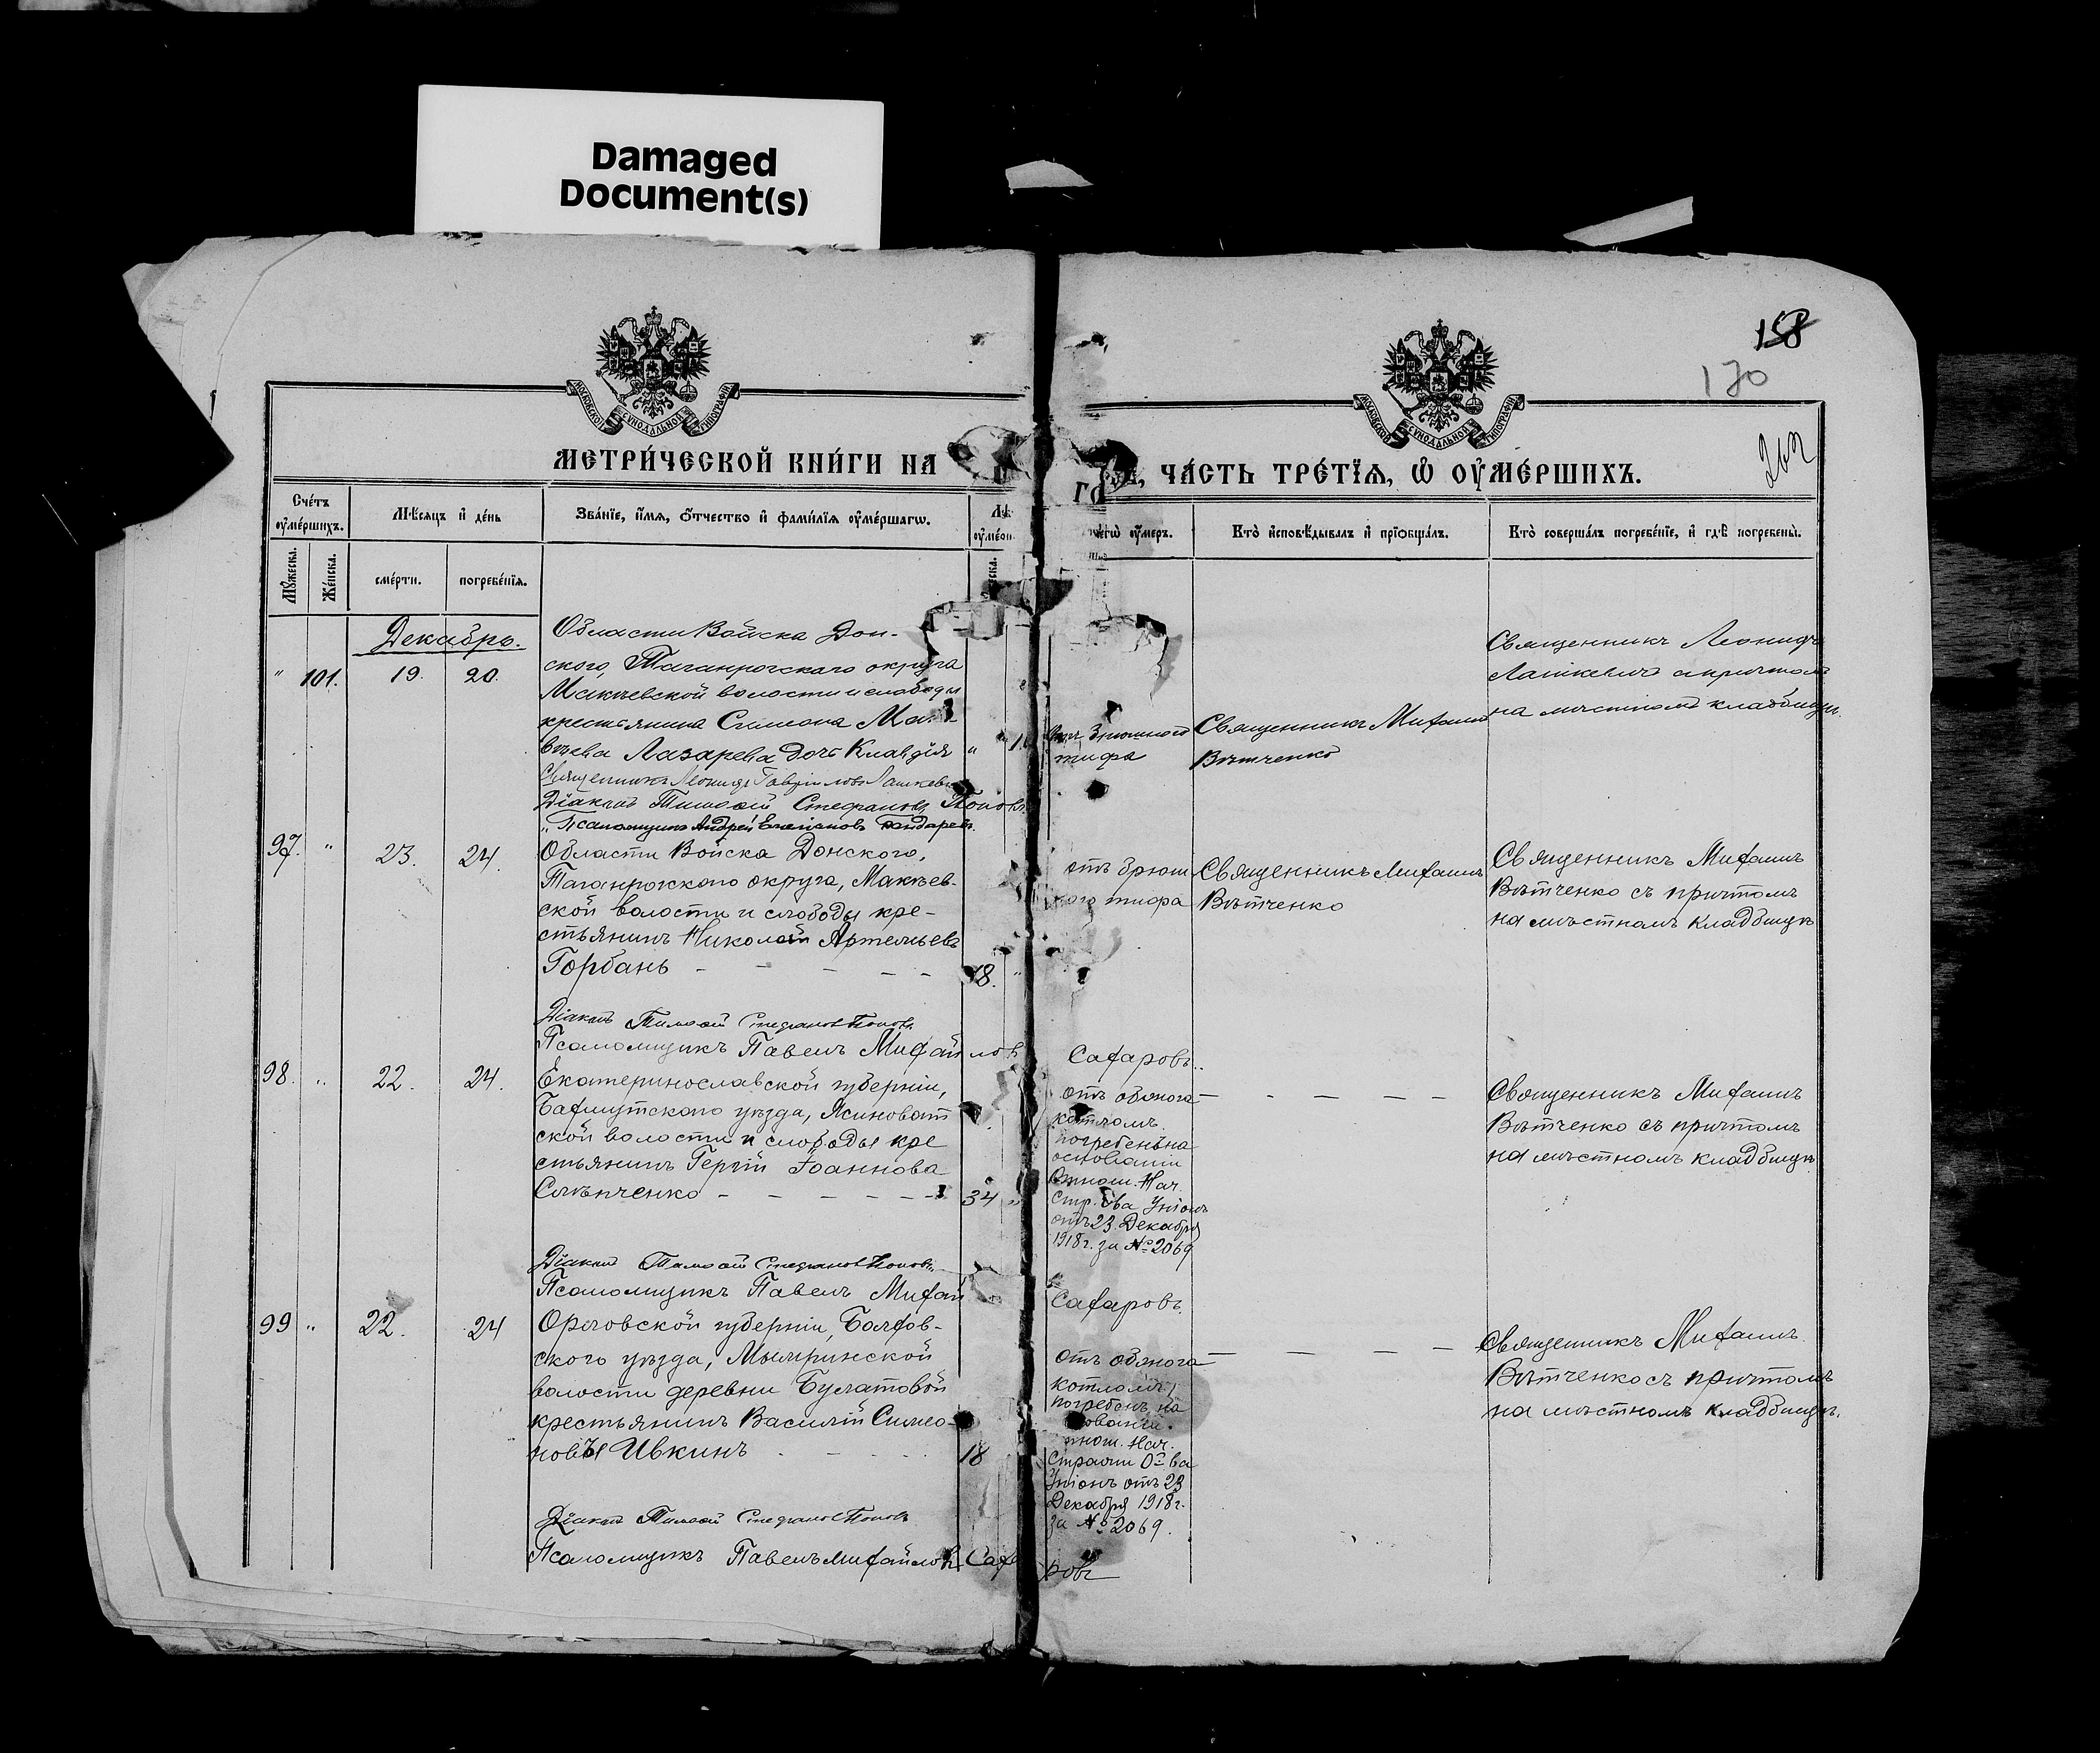 Damaged
Document(s)
158
170
МОСКОВСКОЙ СУНОДАЛЬНОЙ ТИПОГРАФІИ
МОСКОВСКОЙ СУНОДАЛЬНОЙ ТИПОГРАФІИ
МЕТРИ́ЧЕСКОЙ КНИ́ГИ НА
ЧА́СТЬ ТРЕ́ТЇѦ, Ѽ ОУМЕ́РШИХЪ.
Сче́тъ оуме́ршихъ.
Мѣ́сяцъ и҆ де́нь
Зва́нїе, и҆́мя, ѻ҆́тчество и҆ фами́лїя оуме́ршагѡ.
чегѡ̀ оу҆́меръ.
Кто̀ и҆сповѣ́дывалъ и҆ прїѡбща́лъ.
Кто̀ соверша́лъ погребе́нїе, и҆ гдѣ̀ погребены̀.
Мꙋ́жеска.
Же́нска.
сме́рти.
погребе́нїя.
Декабрь.
" 101. 19. 20.
Области Войска Дон-
ского, Таганрогскаго округа
Макѣевской волости и слободы
крестьянина Симеона Мат-
вѣева Лазарева дочь Клавдія "
Священникъ Леонидъ Гавріиловъ Лашкевичъ
Діаконъ Тимофей Стефановъ Поповъ
" Псаломщикъ Андрей Емеліановъ Бондаревъ
отъ брюшного
тифа
Священникъ Михаилъ
Вѣтченко
Священникъ Леонидъ
Лашкевичъ с причтомъ
на мѣстномъ кладбищѣ.
97. " 23. 24.
Области Войска Донского,
Таганрогскаго округа, Макѣев-
ской волости и слободы кре-
стьянинъ Николай Артемьевъ
Горбань - - - - - 18. "
отъ брюш
ного тифа
Священникъ Михаилъ
Вѣтченко
Священникъ Михаилъ
Вѣтченко съ причтомъ
на мѣстномъ кладбищѣ
Діаконъ Тимофей Стефановъ Поповъ
Псаломщикъ Павелъ Михайловъ Сахаровъ.
98. " 22. 24.
Екатеринославской губерніи,
Бахмутскаго уѣзда, Ясиноват
ской волости и слободы кре
стьянинъ Іоаннова
- - - - - - 34 "
отъ обжога
котломъ.
погребенъ на
основаніи
Отнош. Нач.
Стр. О-ва Уніонъ
отъ 23 Декабря
1918 г. за № 2069
- - - - -
Священникъ Михаилъ
Вѣтченко съ причтомъ
на мѣстномъ кладбищѣ
Діаконъ Тимофей Стефановъ Поповъ.
Псаломщикъ Павелъ Михай
Сахаровъ.
99 " 22. 24
Орловской губерніи, Болхов-
ского уѣзда, Мымринской
волости деревни Булатовой
крестьянинъ Василій Симео-
новъ Ивкинъ 18
отъ обжога
котломъ,
погребенъ на
основаніи
отнош. Нач.
Стражи О-ва
Уніонъ отъ 23
Декабря 1918 г.
за № 2069.
- - - -
Священникъ Михаилъ
Вѣтченко съ причтомъ
на мѣстномъ кладбищѣ.
Діаконъ Тимофей Стефановъ Поповъ
Псаломщикъ Павелъ Михайловъ Сахаровъ